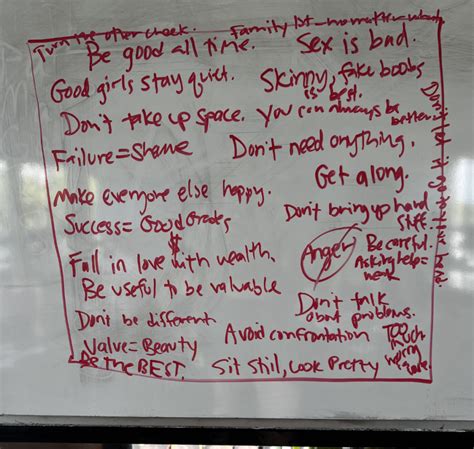 Turn the other cheek.
Family 1st - no matter what
Be good all time.
Sex is bad.
Good girls stay quiet.
Skinny, fake boobs
is best.
Don't take up space.
You can always be
better.
Failure = Shame
Don't need anything.
Get along.
Make everyone else happy.
Don't bring up hard
stuff.
Success = Good Grades
$
Anger
Be careful.
Asking help =
weak
Fall in love with wealth.
Be useful to be valuable
Don't talk
about problems.
Don't be different
Avoid confrontation
Too
much
Value = Beauty
Be the BEST.
Sit still, Look Pretty
Don't let it go to your head.